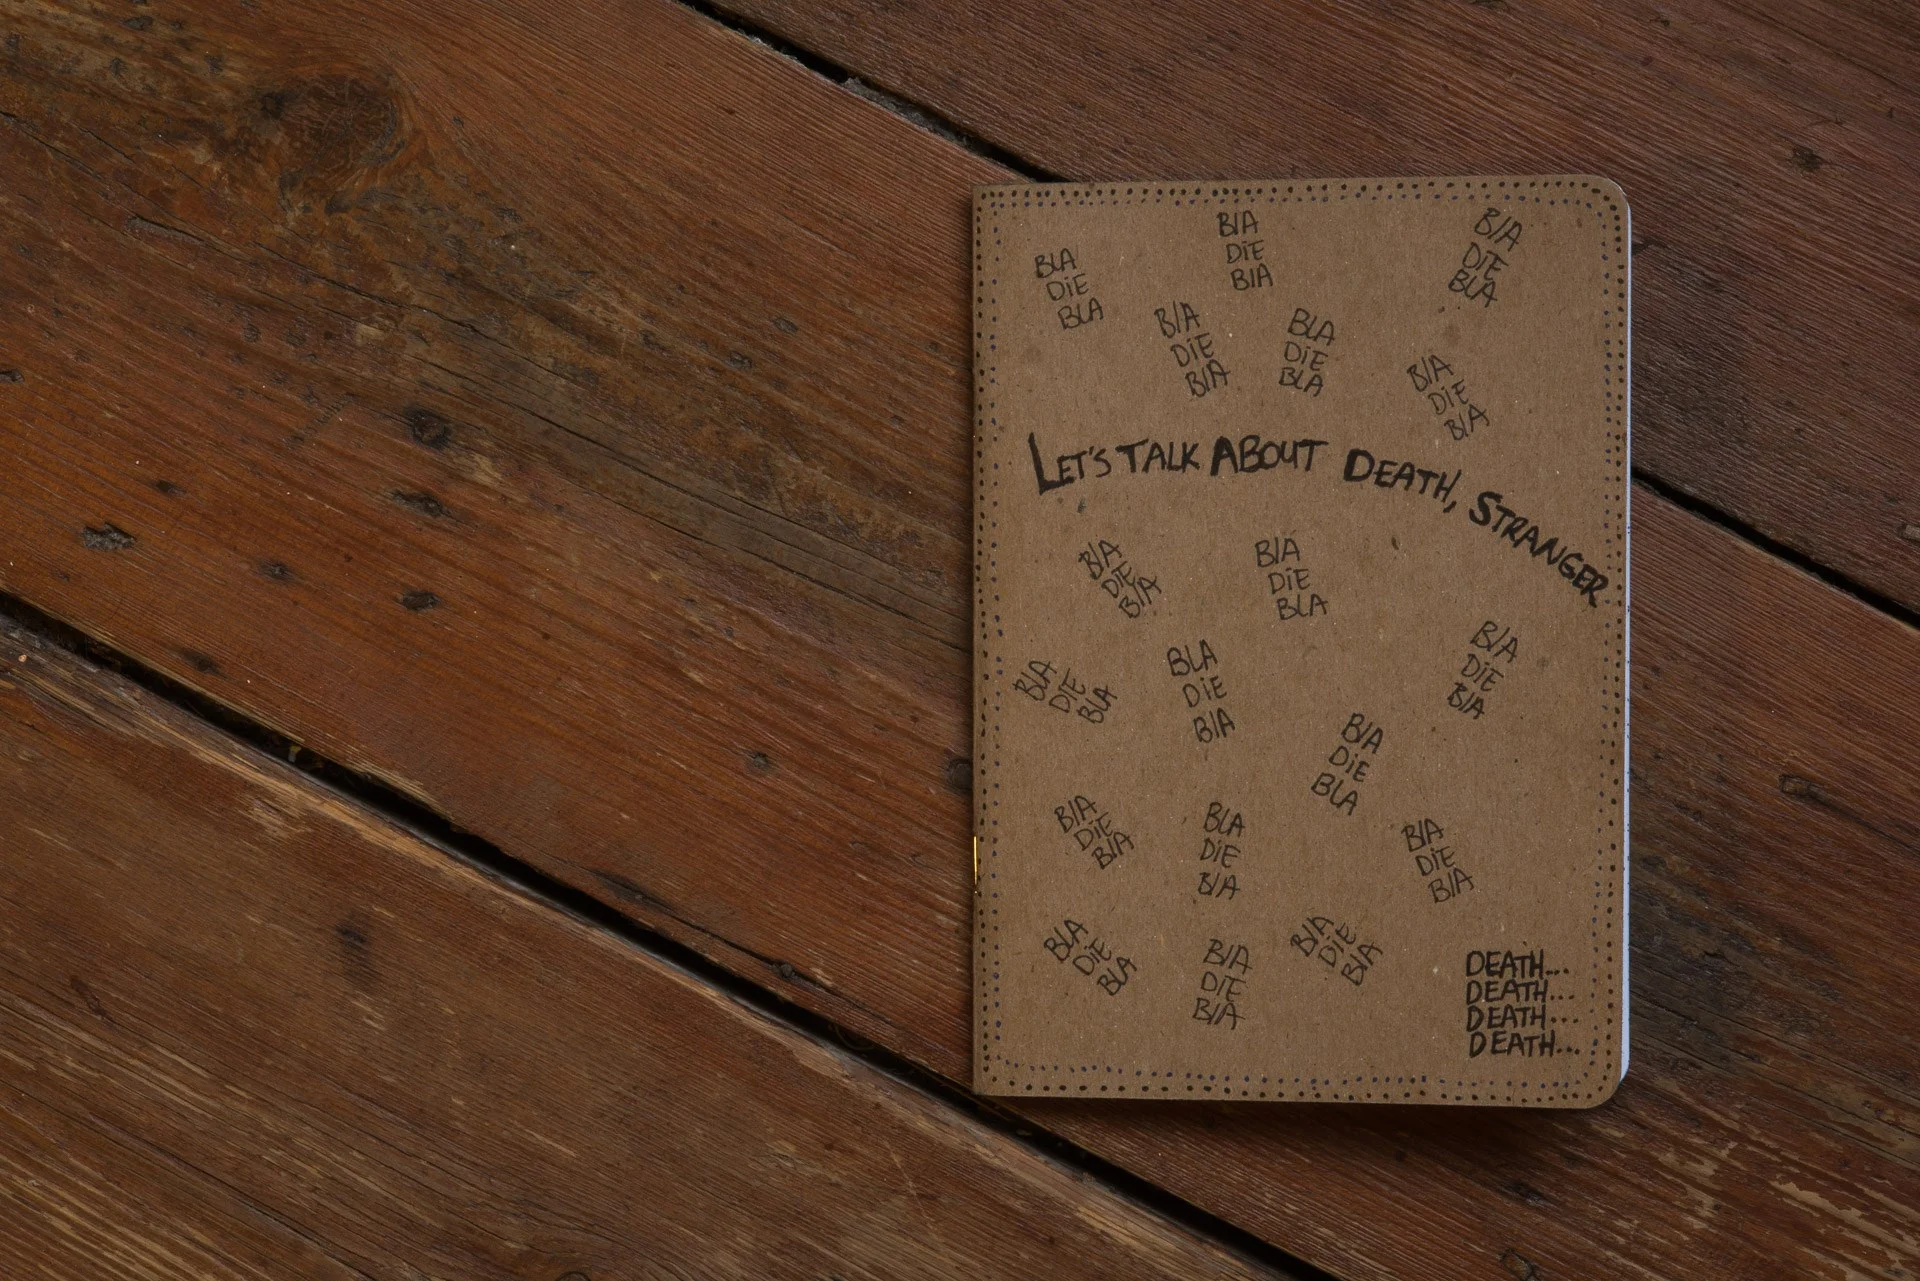 BLA
DiE
BLA
BlA
DiE
BlA
BlA
DiE
BLA
BlA
DiE
BlA
BLA
DiE
BLA
BlA
DiE
BlA
LET'S TALK ABOUT DEATH, STRANGER
BlA
DiE
BlA
BlA
DiE
BLA
BLA
DiE
BLA
BLA
DiE
BlA
BlA
DiE
BlA
BlA
DiE
BLA
BlA
DiE
BlA
BLA
DiE
BlA
BlA
DiE
BlA
BLA
DiE
BLA
BlA
DiE
BlA
BlA
DiE
BlA
DEATH...
DEATH...
DEATH...
DEATH...